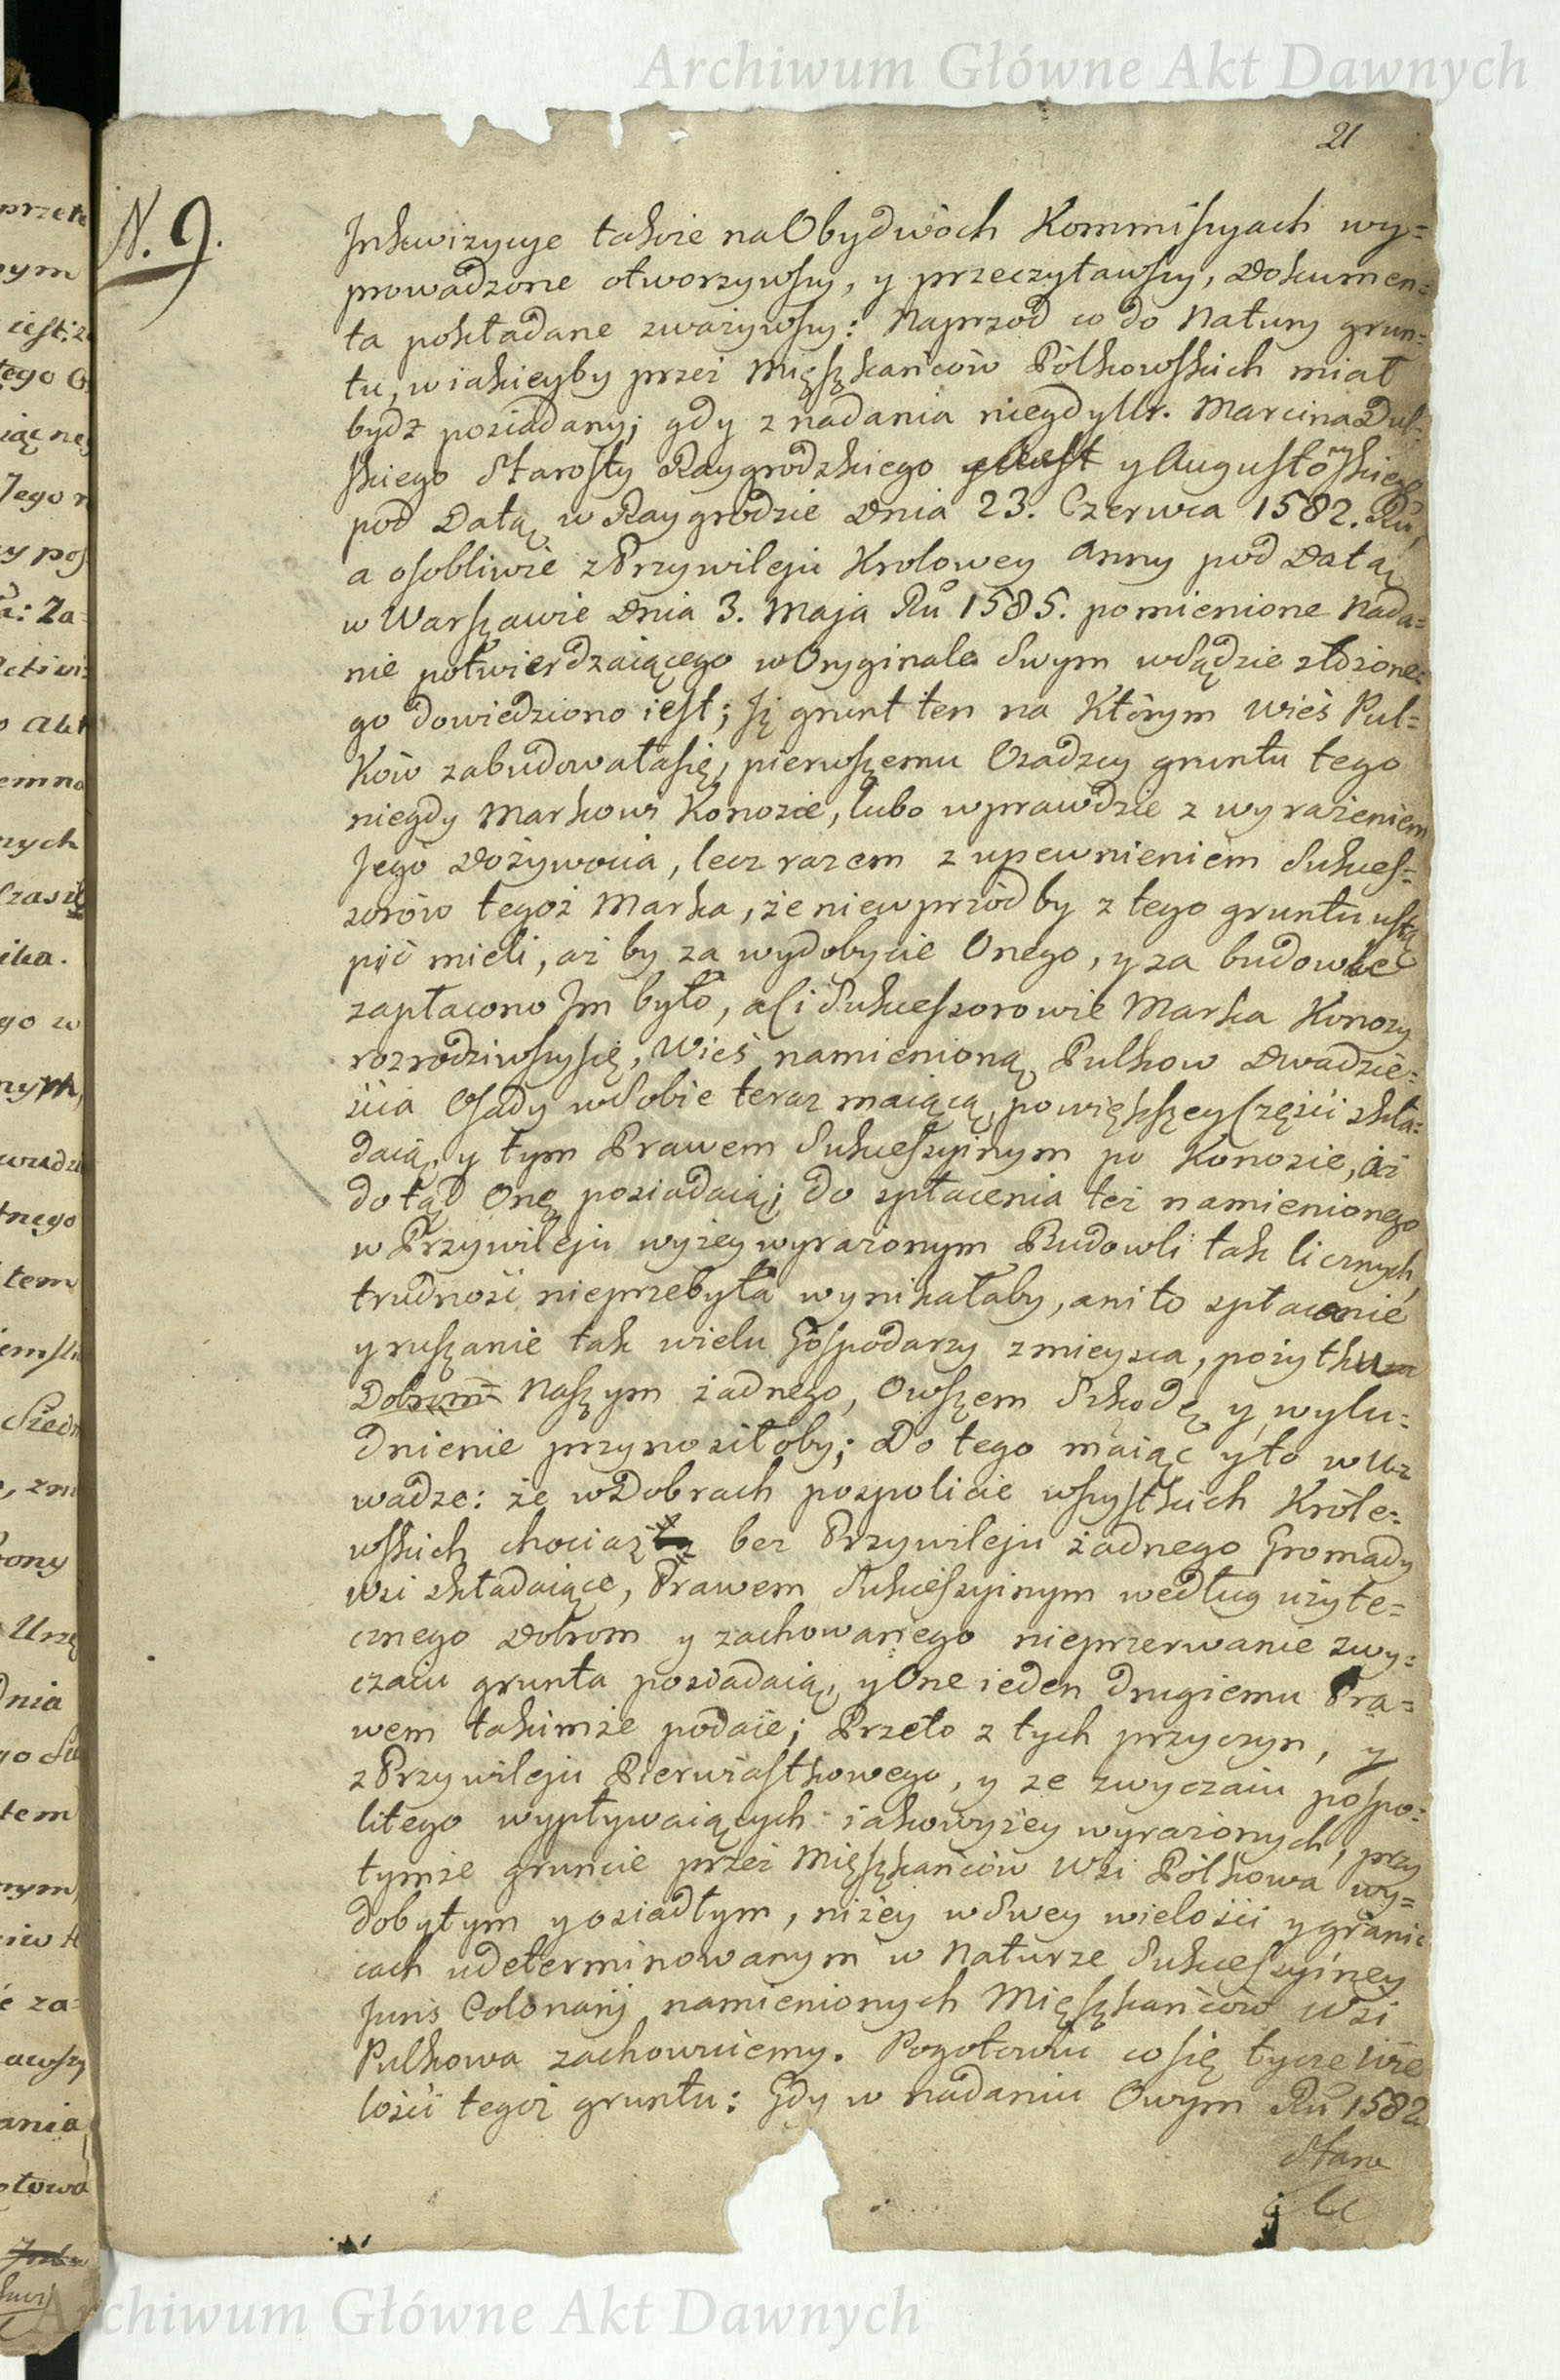 Archiwum Główne Akt Dawnych
21
N. 9.
Inkwizycye takoie na Obydwóch Kommissyach wy=
prowadzone otworzywszy, y przeczytawszy, Dokumen=
ta pokładane zważywszy: Naprzod co do Natury grun=
tu, w iakieyby przez Mięszkańców Pólkowskich miał
bydź posiadany; gdy z nadania niegdy Ur. Marcina Dul=
skiego Starosty Raygrodzkiego y Augustowskiego
pod Datą w Raygrodzie Dnia 23. Czerwca 1582. Ru,
a osobliwie z Przywileju Krolowey Anny pod Datą
w Warszawie Dnia 3. Maja Ru 1585. pomienione Nada=
nie potwierdzaiącego w Oryginale Swym w Sądzie złożone=
go dowiedziono iest; Iż grunt ten na Którym Wieś Pul=
ków zabudowała się, pierwszemu Osadzcy gruntu tego
niegdy Markowi Konozie, lubo wprawdzie z wyrażeniem
Jego Dożywocia, lecz razem z upewnieniem Sukces=
sorów tegoż Marka, że niewprzód by z tego gruntu ustą
pić mieli, aż by za wydobycie Onego, y za budowle
zapłacono Im było, a ci Sukcessorowie Marka Konozy
rozrodziwszy się, Wieś namienioną Pulkow Dwadzie=
ścia Osady w Sobie teraz maiącą, powiększey Częsci skła=
daią, y tym Prawem Sukcessyinym po Konozie, aż
dotąd Onę posiadaią; do spłacenia też namienionego
w Przywileju wyżey wyrażonym Budowli tak licznych,
trudność nieprzebyta wynikałaby, ani to spłacenie
y ruszanie tak wielu Gospodarzy z mieysca, pożytku
Dobrom Naszym żadnego, Owszem Szkodę y wylu=
dnienie przynosiłoby; Do tego maiąc y to w u=
wadze: że w Dobrach pospolicie wszystkich Króle=
wskich chociaż bez Przywileju żadnego Gromady
wsi składaiące, Prawem Sukcessyinym według użyte=
cznego Dobrom y zachowanego nieprzerwanie zwy=
czaiu grunta posiadaią, y One ieden drugiemu Pra=
wem takimże podaie; Przeto z tych przyczyn, y
z Przywileju Pierwiastkowego, y ze zwyczaiu pospo=
litego wypływaiących iako wyżey wyrażonych, przy
tymże gruncie przez Mięszkańców Wsi Pólkowa wy=
dobytym y osiadłym, niżey w Swey wielości y grani=
cach udeterminowanym w Naturze Sukcessyiney
Juris Colonarij namienionych Mięszkańców Wsi
Pulkowa zachowuiemy. Pogotowiu co się tycze Wie
lości tegoż gruntu: Gdy w nadaniu Owym Ru 1582
Stare
Archiwum Główne Akt Dawnych